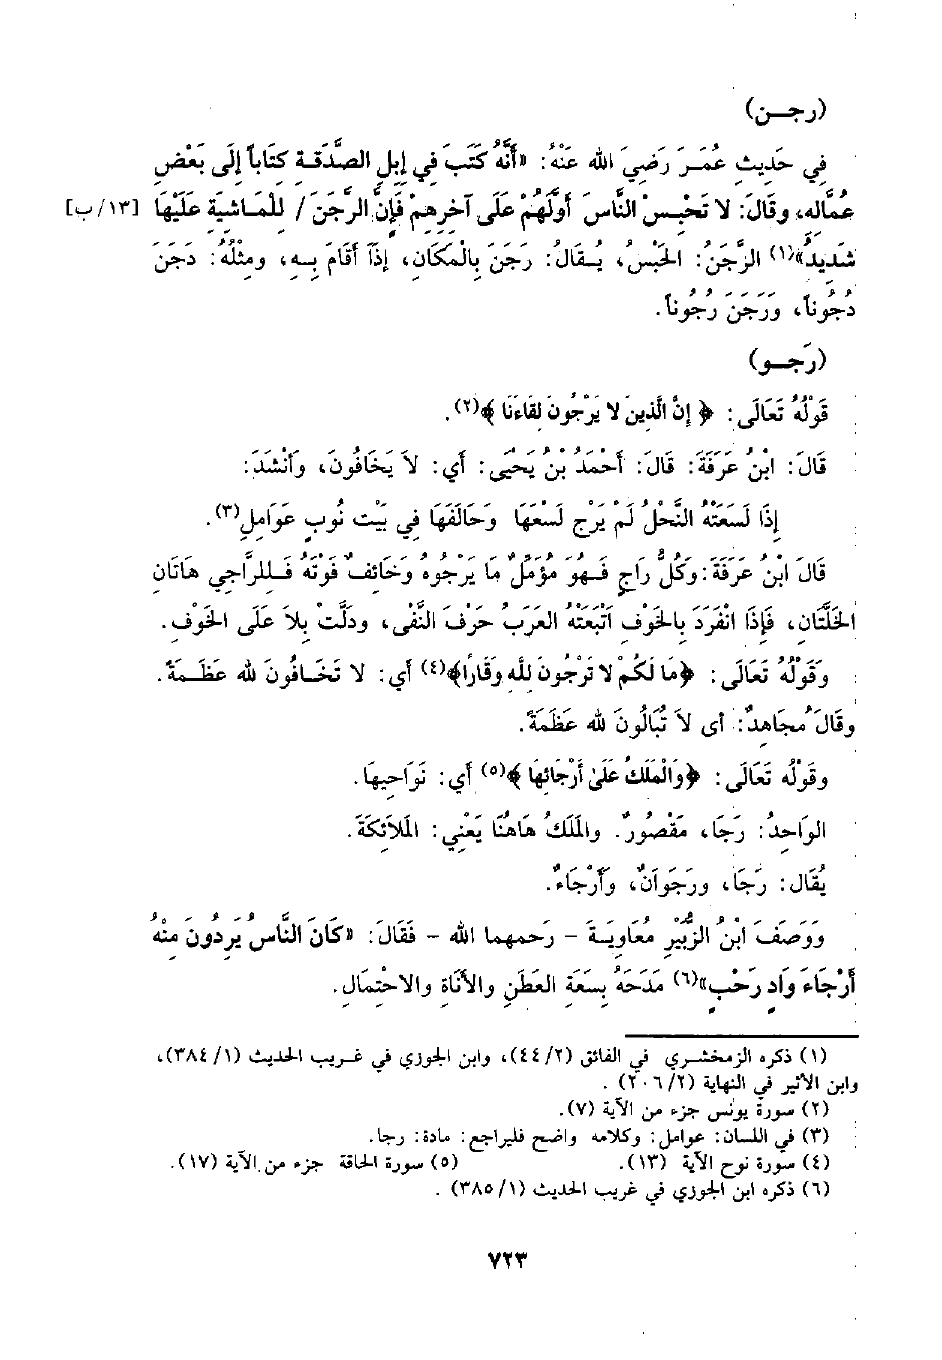 (رجـن)
في حَدِيثِ عُمَـرَ رَضِيَ الله عَنْهُ: «أَنَّهُ كَتَبَ فِي إِبِلِ الصَّدَقَةِ كِتَاباً إِلَى بَعْضِ
عُمَّالِهِ، وقَالَ: لا تَحْبِسْ النَّاسَ أَوَّلَهُمْ عَلَى آخِرِهِمْ فَإِنَّ الرَّجَنَ / لِلْمَاشِيَةِ عَلَيْهَا [١٣/ب]
شَدِيدٌ»(١) الرَّجَنُ: الحَبْسُ، يُـقَالُ: رَجَنَ بِالْمَكَانِ، إِذَآ أَقَامَ بِـهِ، ومِثْلُهُ: دَجَنَ
دُجُوناً، وَرَجَنَ رُجُوناً.
(رَجـو)
قَوْلُهُ تَعَالَى: ﴿ إِنَّ الَّذِينَ لا يَرْجُونَ لِقَاءَنَا ﴾(٢).
قَالَ: ابْنُ عَرَفَةَ: قَالَ: أَحْمَدُ بْنُ يَحْيَى: أي: لاَ يَخَافُونَ، وَأَنْشَدَ:
إِذَا لَسَعَتْهُ النَّحْلُ لَمْ يَرْجِ لَسْعَهَا وَحَالَفَهَا فِي بَيْتِ نُوبٍ عَوَامِلِ(٣).
قَالَ ابْنُ عَرَفَةَ: وَكُلُّ رَاجٍ فَـهُوَ مُؤَمِّلٌ مَا يَرْجُوهُ وَخَائِفٌ فَوْتَهُ فَـلِلرَّاجِي هَاتَانِ
الخَلَّتَانِ، فَإِذَا انْفَرَدَ بِالخَوْفِ أَتْبَعَتْهُ العَرَبُ حَرْفَ النَّفْى، ودَلَّتْ بِلاَ عَلَى الخَوْفِ.
وَقَوْلُهُ تَعَالَى: ﴿مَا لَكُمْ لا تَرْجُونَ لِلَّهِ وَقَارًا﴾(٤) أَي: لا تَخَـافُونَ لله عَظَـمَةً.
وقَالَ مُجَاهِدٌ: أى لاَ تُبَالُونَ لله عَظَمَةً.
وقَوْلُه تَعَالَى: ﴿وَالْمَلَكُ عَلَىٰ أَرْجَائِهَا ﴾(٥) أَي: نَوَاحِيهَا.
الوَاحِدُ: رَجَا، مَقْصُورٌ. والمَلَكُ هَاهُنَا يَعْنِي: المَلاَئِكَةَ.
يُقَال: رَجَا، ورَجَوَانٌ، وَأَرْجَاءٌ.
وَوَصَفَ ابْنُ الزُّبَيْرِ مُعَاوِيَـةَ - رَحمهما الله - فَقَالَ: «كَانَ النَّاسُ يُرِدُونَ مِنْهُ
أَرْجَاءَ وَادٍ رَحْبٍ»(٦) مَدَحَهُ بِسَعَةِ العَطَنِ والأَنَاةِ والاحْتِمَالِ.
(١) ذكره الزمخشـري في الفائق (٤٤/٢)، وابن الجوزي في غـريب الحديث (٣٨٤/١)،
وابن الأثير في النهاية (٢٠٦/٢) .
(٢) سورة يونس جزء من الآية (٧).
(٣) في اللسان: عوامل: وكلامه واضح فليراجع: مادة: رجا.
(٤) سورة نوح الآية (١٣). (٥) سورة الحاقة جزء من الآية (١٧).
(٦) ذكره ابن الجوزي في غريب الحديث (٣٨٥/١) .
٧٢٣